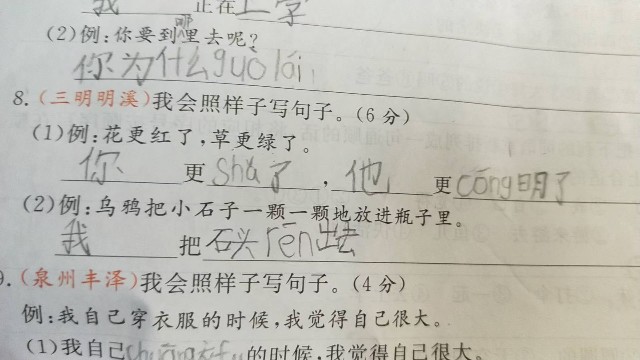 我 正在上学
(2)例:你要到哪里去呢?
你为什么guò lái,
8.(三明明溪)我会照样子写句子。(6分)
(1)例:花更红了,草更绿了。
你 更 shǎ了, 他 更 cōng明了
(2)例:乌鸦把小石子一颗一颗地放进瓶子里。
我 把 石头rēn出去
9.(泉州丰泽)我会照样子写句子。(4分)
例:我自己穿衣服的时候,我觉得自己很大。
(1)我自己 的时候,我觉得自己很大。